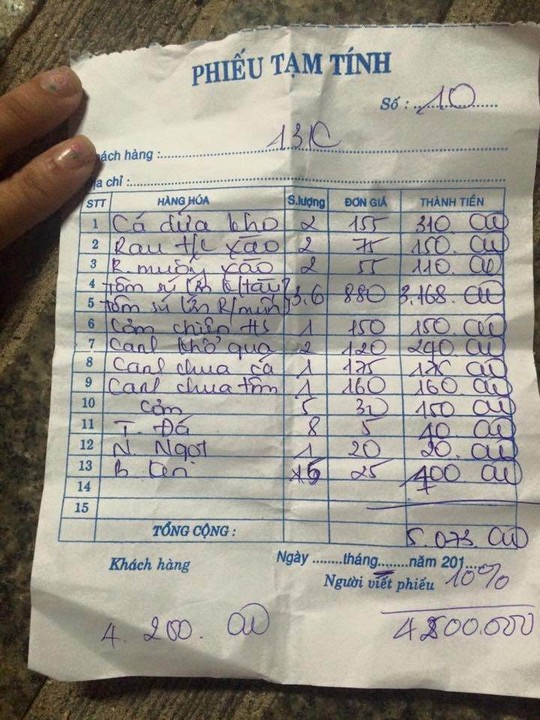 PHIẾU TẠM TÍNH
Số : 10
ách hàng : 131C
ịa chỉ :
STT HÀNG HÓA S.lượng ĐƠN GIÁ THÀNH TIỀN
1 Cá dứa kho 2 155 310.
2 Rau t/c xào 2 75 150.
3 R. muống xào 2 55 110.
4 Tôm sú
5 Tôm sú 3.6 880 3.168.
6 Cơm chiên HS 1 150 150.
7 Canh khổ qua 2 120 240.
8 Canh chua cá 1 175
9 Canh chua tôm 1 160 160
10 Cơm 5 30 150
11 T. Đá 8 5 40
12 N. Ngọt 1 20 20.
13 25 400
14
15
TỔNG CỘNG : 5.073.
Khách hàng Ngày ........tháng........năm 201....
Người viết phiếu 10%
4.200.